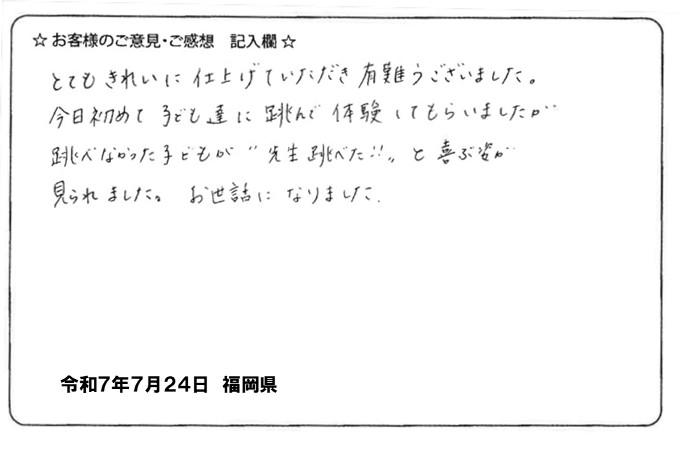 ☆お客様のご意見・ご感想 記入欄☆
とてもきれいに仕上げていただき有難うございました。
今日初めて子ども達に跳んで体験してもらいましたが
跳べなかった子どもが〝先生跳べた!!〟と喜ぶ姿が
見られました。お世話になりました.
令和7年7月24日 福岡県